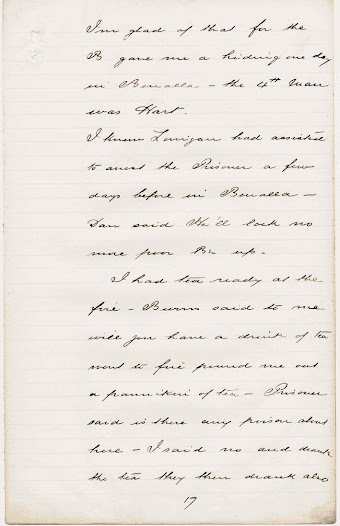 I'm glad of that for the
B gave me a hiding one day
in Benalla – the 4th man
was Hart.
I knew Lonigan had assisted
to arrest the Prisoner a few
days before in Benalla –
Dan said He'll lock no
more poor Brs up –
I had tea ready at the
fire – Burns said to me
will you have a drink of tea
went to fire poured me out
a pannikin of tea – Prisoner
said is there any poison about
here – I said no and drank
the tea they then drank also
17